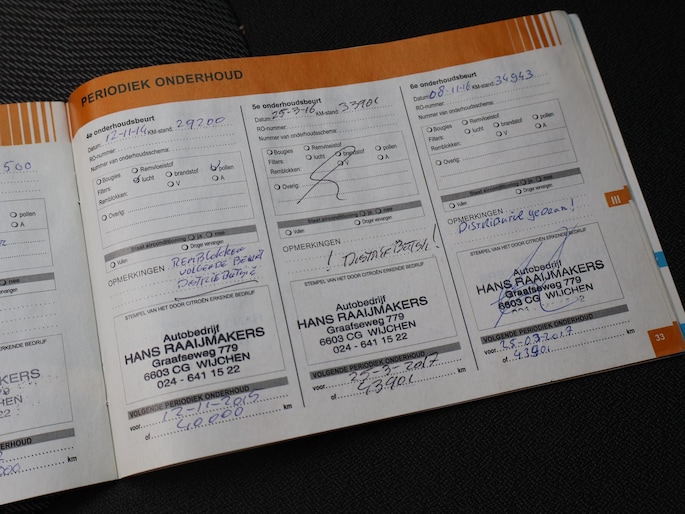 500
pollen
A
meer
vervangen
ERKENDE BEDRIJF
KERS
CHEN
22
ONDERHOUD
km
PERIODIEK ONDERHOUD
4e onderhoudsbeurt
Datum: 12-11-14 KM-stand: 29200
RO-nummer:
Nummer van onderhoudsschema:
Bougies Remvloeistof
Filters: lucht brandstof pollen
Remblokken: V A
Overig:
Staat airconditioning Ja nee
Vullen Droger vervangen
OPMERKINGEN Remblokken
volgende beurt
STEMPEL VAN HET DOOR CITROËN ERKENDE BEDRIJF
Autobedrijf
HANS RAAIJMAKERS
Graafseweg 779
6603 CG WIJCHEN
024 - 641 15 22
VOLGENDE PERIODIEK ONDERHOUD
voor 12-11-2015
of 40.000 km
5e onderhoudsbeurt
Datum: 25-3-16 KM-stand: 33901
RO-nummer:
Nummer van onderhoudsschema:
Bougies Remvloeistof
Filters: lucht brandstof pollen
Remblokken: V A
Overig:
Staat airconditioning Ja nee
Vullen Droger vervangen
OPMERKINGEN
STEMPEL VAN HET DOOR CITROËN ERKENDE BEDRIJF
Autobedrijf
HANS RAAIJMAKERS
Graafseweg 779
6603 CG WIJCHEN
024 - 641 15 22
VOLGENDE PERIODIEK ONDERHOUD
voor 25-3-2017
of 43901 km
6e onderhoudsbeurt
Datum: 08-11-16 KM-stand: 34943
RO-nummer:
Nummer van onderhoudsschema:
Bougies Remvloeistof
Filters: lucht brandstof pollen
Remblokken: V A
Overig:
Staat airconditioning Ja nee
Vullen Droger vervangen
OPMERKINGEN
Distributie gedaan!
STEMPEL VAN HET DOOR CITROËN ERKENDE BEDRIJF
Autobedrijf
HANS RAAIJMAKERS
Graafseweg 779
6603 CG WIJCHEN
024 - 641 15 22
VOLGENDE PERIODIEK ONDERHOUD
voor 25-03-2017
of 43901 km
III
33